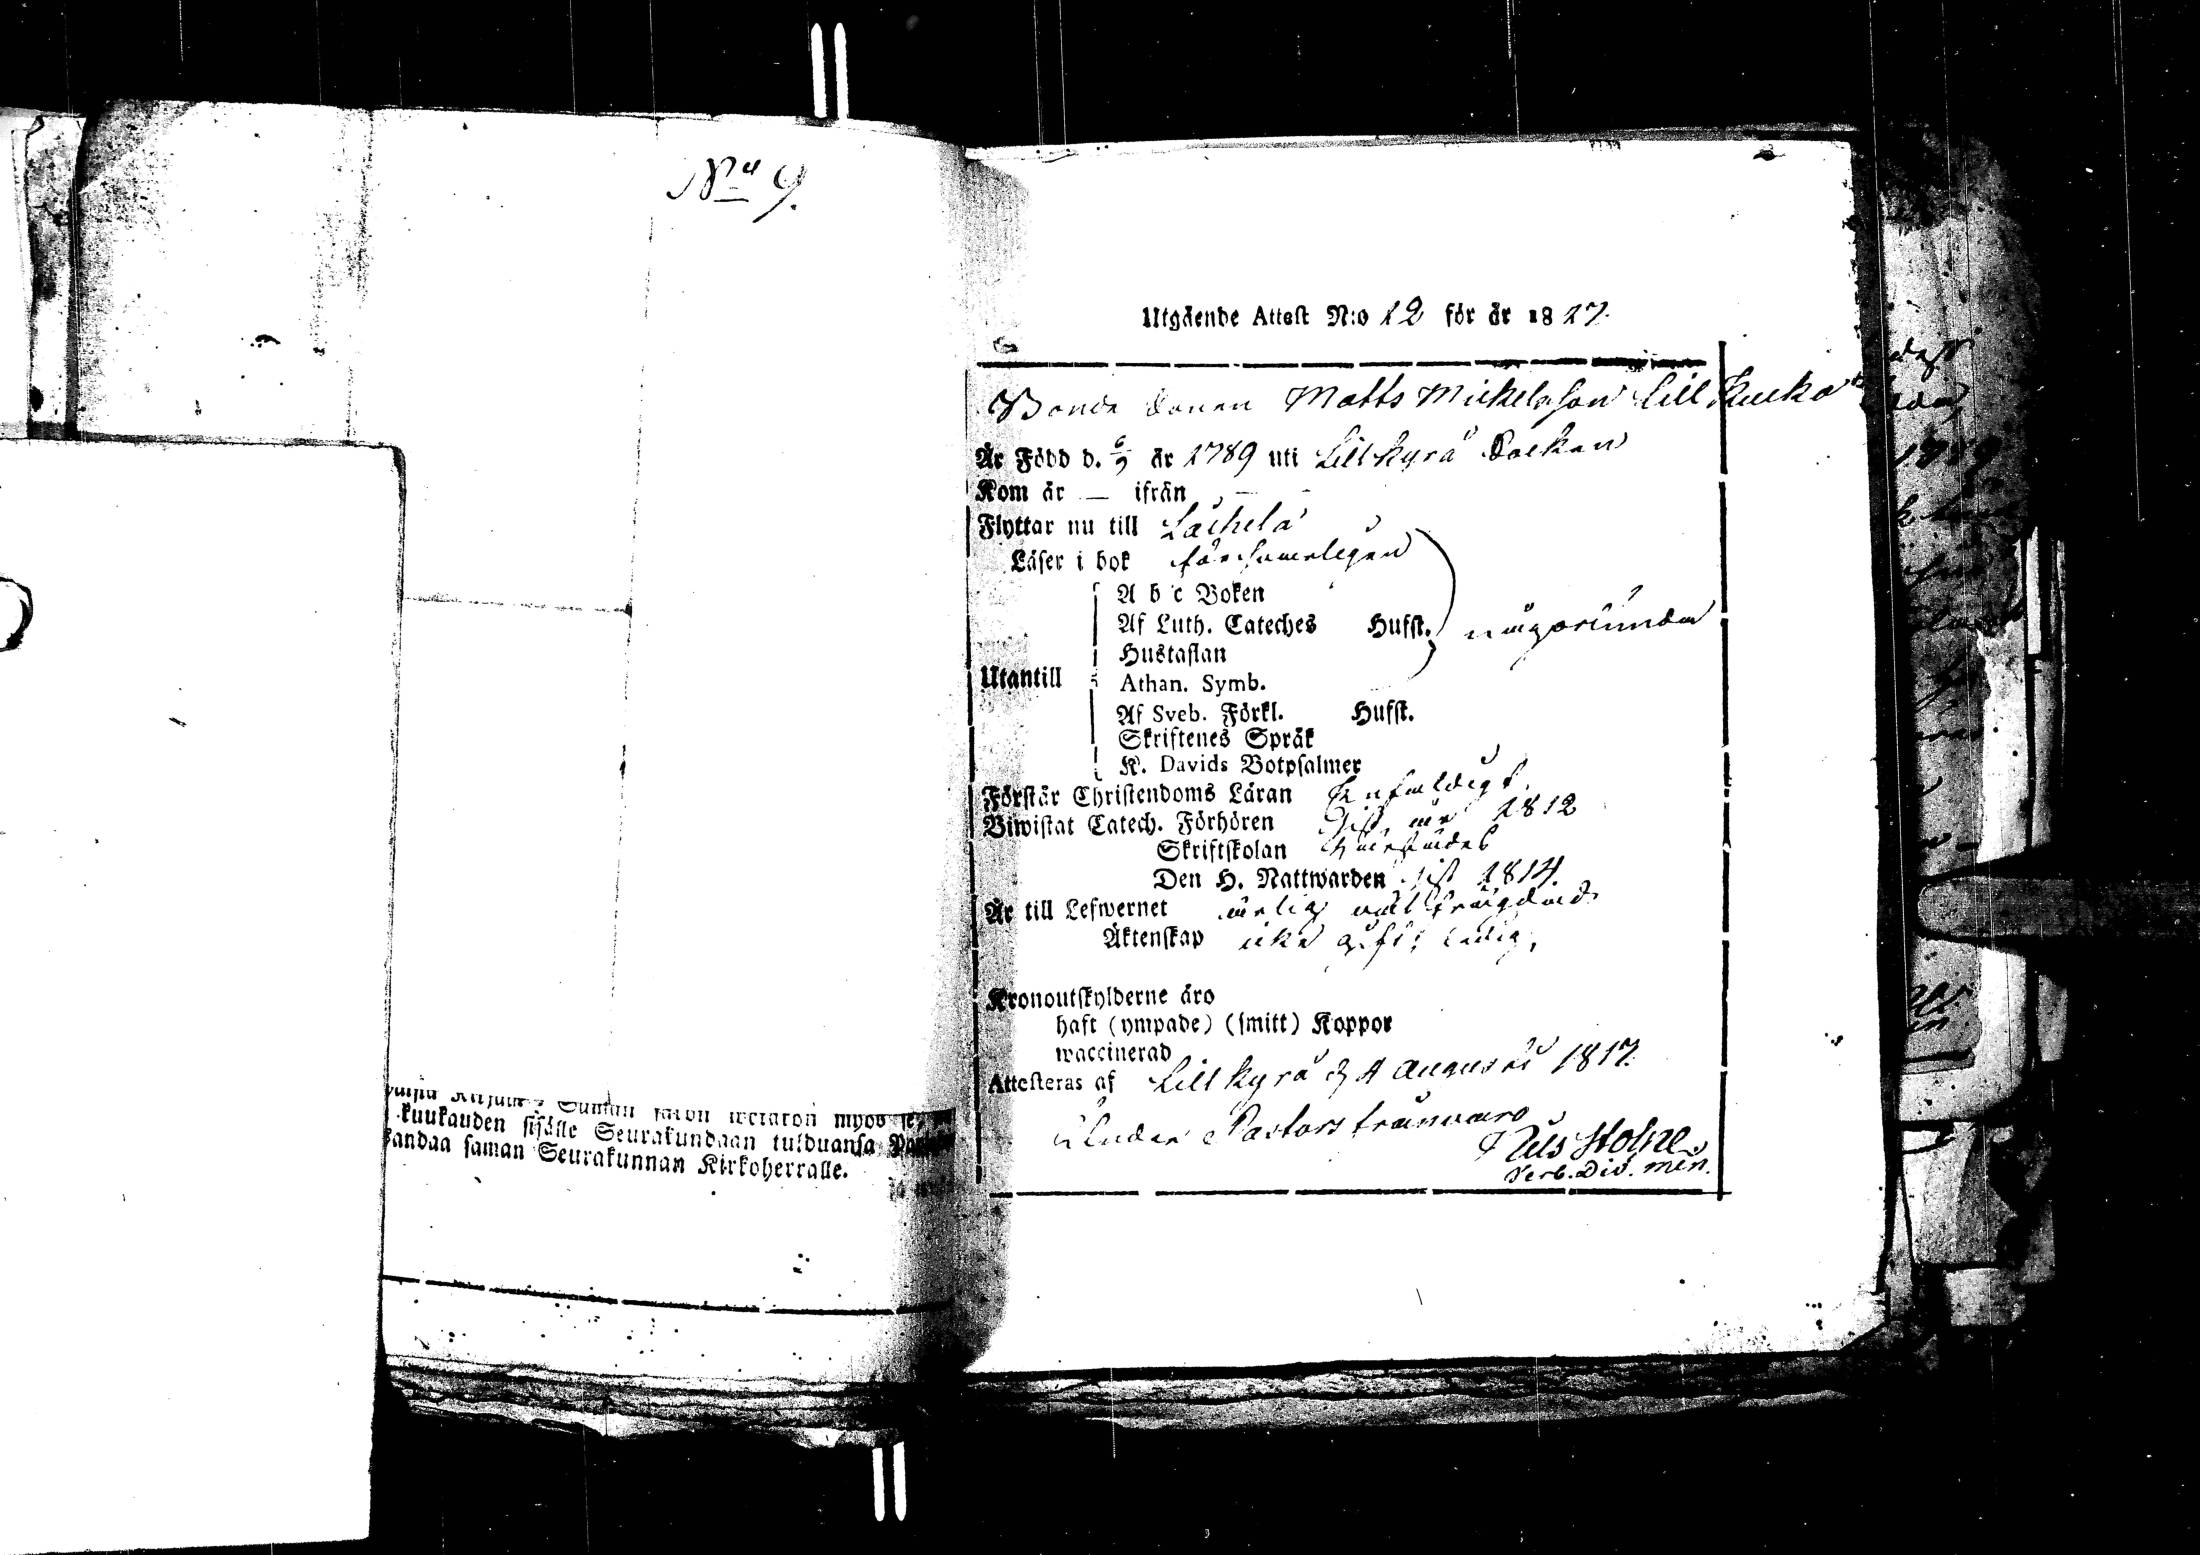 No 9.
kuukauden sisälle Seurakundaan tulduansa
saman Seurakunnan Kirkoherralle.
Utgående Attest N:o 12 för år 1817.
Bonde Sonen Matts Mickelsson Lill
Är Född d. 6/9 år 1789 uti Lillkyro Socken
Kom år — ifrån —
Flyttar nu till Laihela
Läser i bok försvarligen
A b c Boken
Af Luth. Cateches Hufst. någorlunda
Hustaflan
Utantill Athan. Symb.
Af Sveb. Förkl. Hufst.
Skriftenes Språk
K. Davids Botpsalmer
Förstår Christendoms Läran Enfaldigt
Biwistat Catech. Förhören Sist år 1812
Skriftskolan
Den H. Nattwarden sist 1814.
Är till Lefwernet ärlig och frägdad
Äktenskap icke gift; ledig.
Kronoutskylderne äro
haft (ympade) (smitt) Koppor
waccinerad
Attesteras af Lillkyro d 4 Augusti 1817.
Under Pastors frånvaro
Nils
Verb. Div. Min.